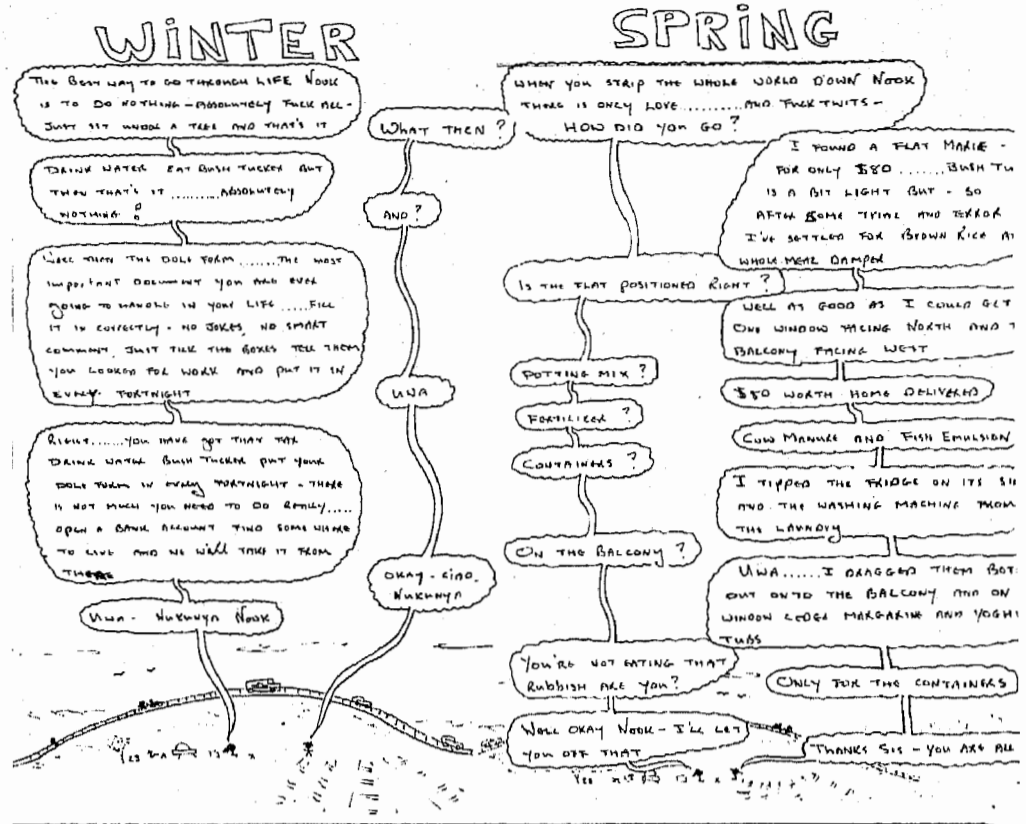 WINTER
THE BEST WAY TO GO THROUGH LIFE NOOK
IS TO DO NOTHING - ABSOLUTELY FUCK ALL -
JUST SIT UNDER A TREE AND THAT'S IT
WHAT THEN?
DRINK WATER EAT BUSH TUCKER BUT
THEN THAT'S IT ......... ABSOLUTELY
NOTHING!
AND?
WELL THEN THE DOLE FORM ........ THE MOST
IMPORTANT DOCUMENT YOU ARE EVER
GOING TO HANDLE IN YOUR LIFE ..... FILL
IT IN CORRECTLY - NO JOKES, NO SMART
COMMENT, JUST TICK THE BOXES TELL THEM
YOU LOOKED FOR WORK AND PUT IT IN
EVERY FORTNIGHT
UWA
RIGHT ....... YOU HAVE GOT THAT
DRINK WATER BUSH TUCKER PUT YOUR
DOLE FORM IN EVERY FORTNIGHT - THERE
IS NOT MUCH YOU NEED TO DO REALLY .....
OPEN A BANK ACCOUNT FIND SOME WHERE
TO LIVE AND WE WILL TAKE IT FROM
THERE
OKAY - CIAO.
NUKUNYA
UWA - NUKUNYA NOOK
SPRING
WHEN YOU STRIP THE WHOLE WORLD DOWN NOOK
THERE IS ONLY LOVE .......... AND FUCK TWITS -
HOW DID YOU GO?
I FOUND A FLAT MARIE -
FOR ONLY $80 ....... BUSH TU
IS A BIT LIGHT BUT - SO
AFTER SOME TRIAL AND ERROR
I'VE SETTLED FOR BROWN RICE A
WHOLE MEAL DAMPER
IS THE FLAT POSITIONED RIGHT?
WELL AS GOOD AS I COULD GET
ONE WINDOW FACING NORTH AND T
BALCONY FACING WEST
POTTING MIX?
$80 WORTH HOME DELIVERED
FERTILIZER?
COW MANURE AND FISH EMULSION
CONTAINERS?
I TIPPED THE FRIDGE ON ITS SI
AND THE WASHING MACHINE FROM
THE LAUNDRY
ON THE BALCONY?
UWA ...... I DRAGGED THEM BOT
OUT ONTO THE BALCONY AND ON
WINDOW LEDGE MARGARINE AND YOGH
TUBS
YOU'RE NOT EATING THAT
RUBBISH ARE YOU?
ONLY FOR THE CONTAINERS
WELL OKAY NOOK - I'LL LET
YOU OFF THAT
THANKS SIS - YOU ARE ALL